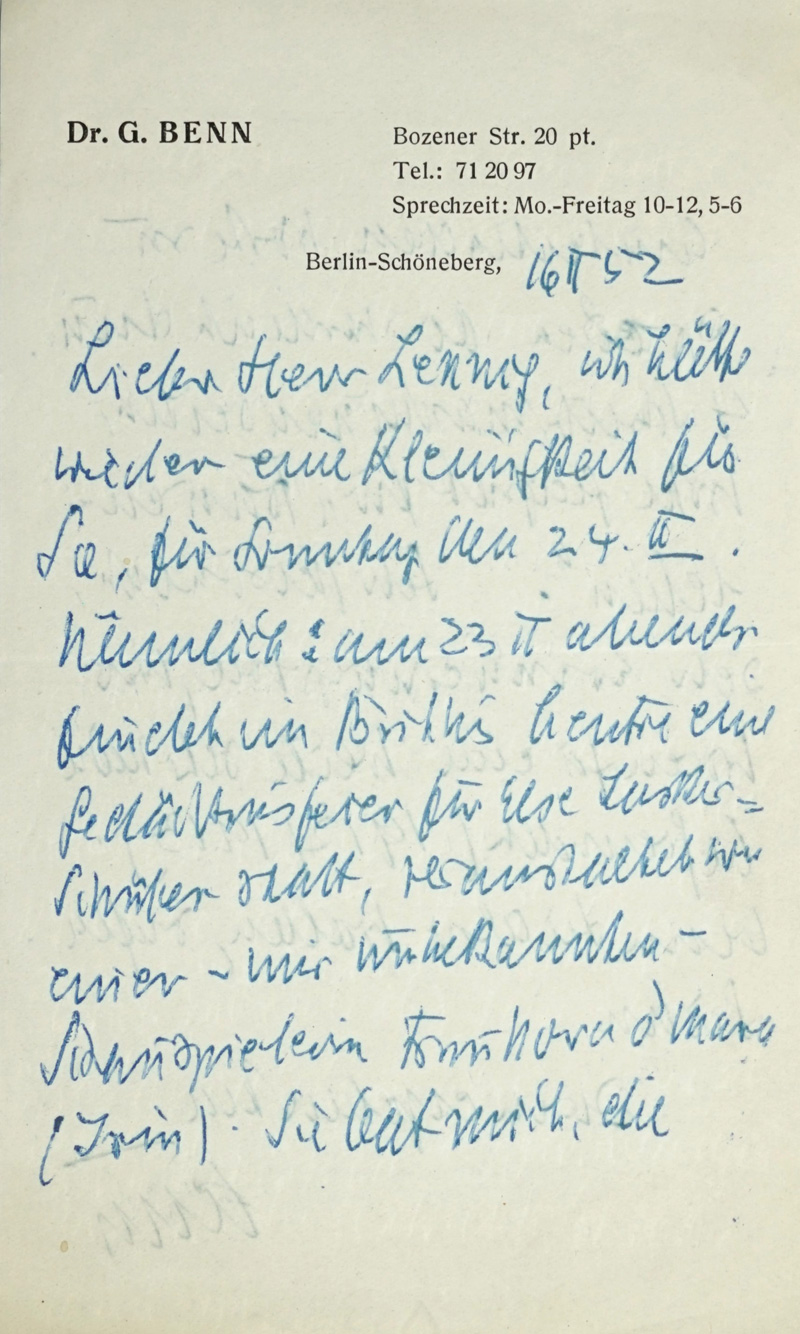 Dr. G. BENN
Bozener Str. 20 pt.
Tel.: 71 20 97
Sprechzeit: Mo.-Freitag 10-12, 5-6
Berlin-Schöneberg, 16 II 52
Lieber Herr Lennig, ich hätte
wieder eine Kleinigkeit für
Sie, für Sonntag den 24. II.
Nämlich: am 23 II abends
findet im British Centre eine
Gedächtnisfeier für Else Lasker-
Schüler statt, veranstaltet von
einer - mir unbekannten -
Schauspielerin O'Mara
(Irin). Sie bat mich, die